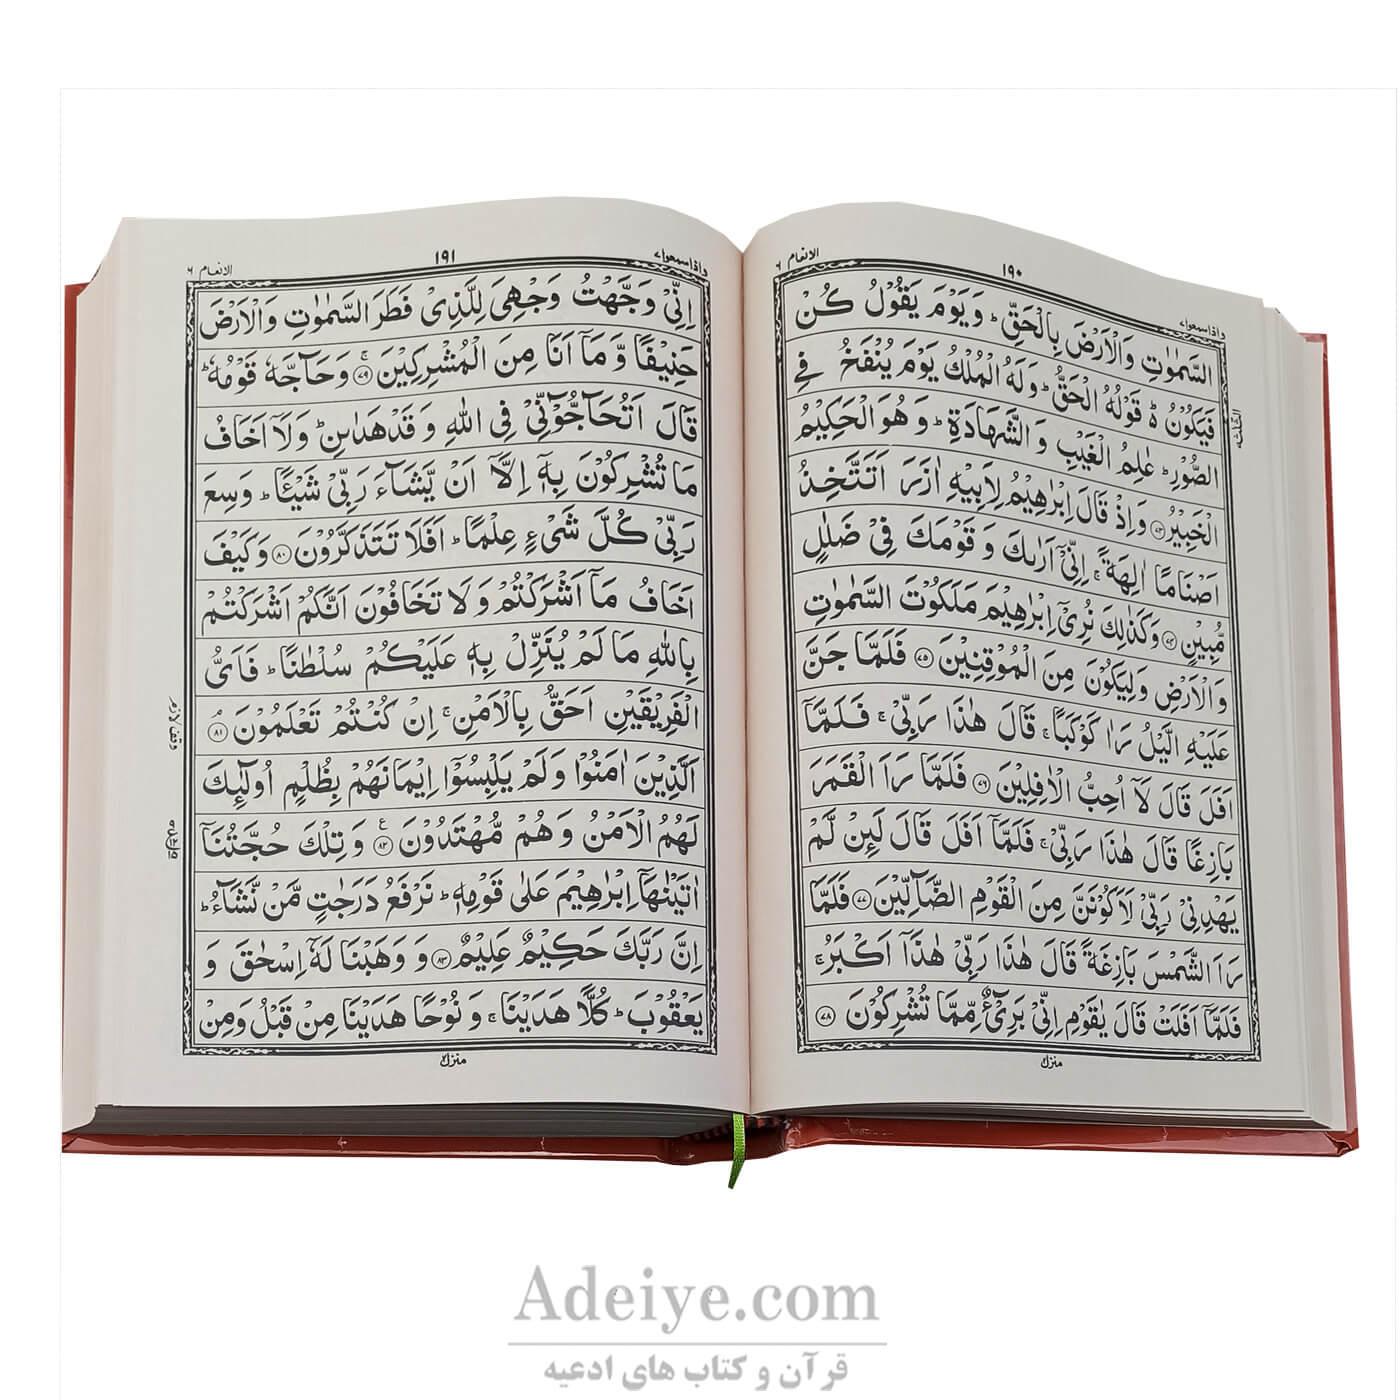 الانعام ٦
١٩٠
واذاسمعوا٧
السَّمٰوٰتِ وَالْاَرْضَ بِالْحَقِّ ؕ وَيَوْمَ يَقُوْلُ كُنْ
فَيَكُوْنُ ؕ۬ قَوْلُهُ الْحَقُّ ؕ وَلَهُ الْمُلْكُ يَوْمَ يُنْفَخُ فِي
الصُّوْرِ ؕ عٰلِمُ الْغَيْبِ وَالشَّهَادَةِ ؕ وَهُوَ الْحَكِيْمُ
الْخَبِيْرُ ﴿٧٣﴾ وَاِذْ قَالَ اِبْرٰهِيْمُ لِاَبِيْهِ اٰزَرَ اَتَتَّخِذُ
اَصْنَامًا اٰلِهَةً ۚ اِنِّيْۤ اَرٰىكَ وَ قَوْمَكَ فِيْ ضَلٰلٍ
مُّبِيْنٍ ﴿٧٤﴾ وَكَذٰلِكَ نُرِيْۤ اِبْرٰهِيْمَ مَلَكُوْتَ السَّمٰوٰتِ
وَالْاَرْضِ وَلِيَكُوْنَ مِنَ الْمُوْقِنِيْنَ ﴿٧٥﴾ فَلَمَّا جَنَّ
عَلَيْهِ الَّيْلُ رَاٰ كَوْكَبًا ۚ قَالَ هٰذَا رَبِّيْ ۚ فَلَمَّاۤ
اَفَلَ قَالَ لَاۤ اُحِبُّ الْاٰفِلِيْنَ ﴿٧٦﴾ فَلَمَّا رَاَ الْقَمَرَ
بَازِغًا قَالَ هٰذَا رَبِّيْ ۚ فَلَمَّاۤ اَفَلَ قَالَ لَئِنْ لَّمْ
يَهْدِنِيْ رَبِّيْ لَاَكُوْنَنَّ مِنَ الْقَوْمِ الضَّآلِّيْنَ ﴿٧٧﴾ فَلَمَّا
رَاَ الشَّمْسَ بَازِغَةً قَالَ هٰذَا رَبِّيْ هٰذَاۤ اَكْبَرُ ۚ
فَلَمَّاۤ اَفَلَتْ قَالَ يٰقَوْمِ اِنِّيْ بَرِيْٓءٌ مِّمَّا تُشْرِكُوْنَ ﴿٧٨﴾
منزل٢
الانعام ٦
١٩١
واذاسمعوا٧
اِنِّيْ وَجَّهْتُ وَجْهِيَ لِلَّذِيْ فَطَرَ السَّمٰوٰتِ وَالْاَرْضَ
حَنِيْفًا وَّ مَاۤ اَنَا مِنَ الْمُشْرِكِيْنَ ۚ﴿٧٩﴾ وَ حَآجَّهٗ قَوْمُهٗ ؕ
قَالَ اَتُحَآجُّوْٓنِّيْ فِي اللّٰهِ وَ قَدْ هَدٰىنِ ؕ وَلَاۤ اَخَافُ
مَا تُشْرِكُوْنَ بِهٖۤ اِلَّاۤ اَنْ يَّشَآءَ رَبِّيْ شَيْـًٔا ؕ وَسِعَ
رَبِّيْ كُلَّ شَيْءٍ عِلْمًا ؕ اَفَلَا تَتَذَكَّرُوْنَ ﴿٨٠﴾ وَكَيْفَ
اَخَافُ مَاۤ اَشْرَكْتُمْ وَ لَا تَخَافُوْنَ اَنَّكُمْ اَشْرَكْتُمْ
بِاللّٰهِ مَا لَمْ يُنَزِّلْ بِهٖ عَلَيْكُمْ سُلْطٰنًا ؕ فَاَيُّ
الْفَرِيْقَيْنِ اَحَقُّ بِالْاَمْنِ ۚ اِنْ كُنْتُمْ تَعْلَمُوْنَ ۘ﴿٨١﴾
اَلَّذِيْنَ اٰمَنُوْا وَ لَمْ يَلْبِسُوْۤا اِيْمَانَهُمْ بِظُلْمٍ اُولٰٓئِكَ
لَهُمُ الْاَمْنُ وَ هُمْ مُّهْتَدُوْنَ ﴿٨٢﴾ وَ تِلْكَ حُجَّتُنَاۤ
اٰتَيْنٰهَاۤ اِبْرٰهِيْمَ عَلٰى قَوْمِهٖ ؕ نَرْفَعُ دَرَجٰتٍ مَّنْ نَّشَآءُ ؕ
اِنَّ رَبَّكَ حَكِيْمٌ عَلِيْمٌ ﴿٨٣﴾ وَ وَهَبْنَا لَهٗۤ اِسْحٰقَ وَ
يَعْقُوْبَ ؕ كُلًّا هَدَيْنَا ۚ وَ نُوْحًا هَدَيْنَا مِنْ قَبْلُ وَمِنْ
وقف لازم
منزل٢
Adeiye.com
قرآن و کتاب های ادعیه